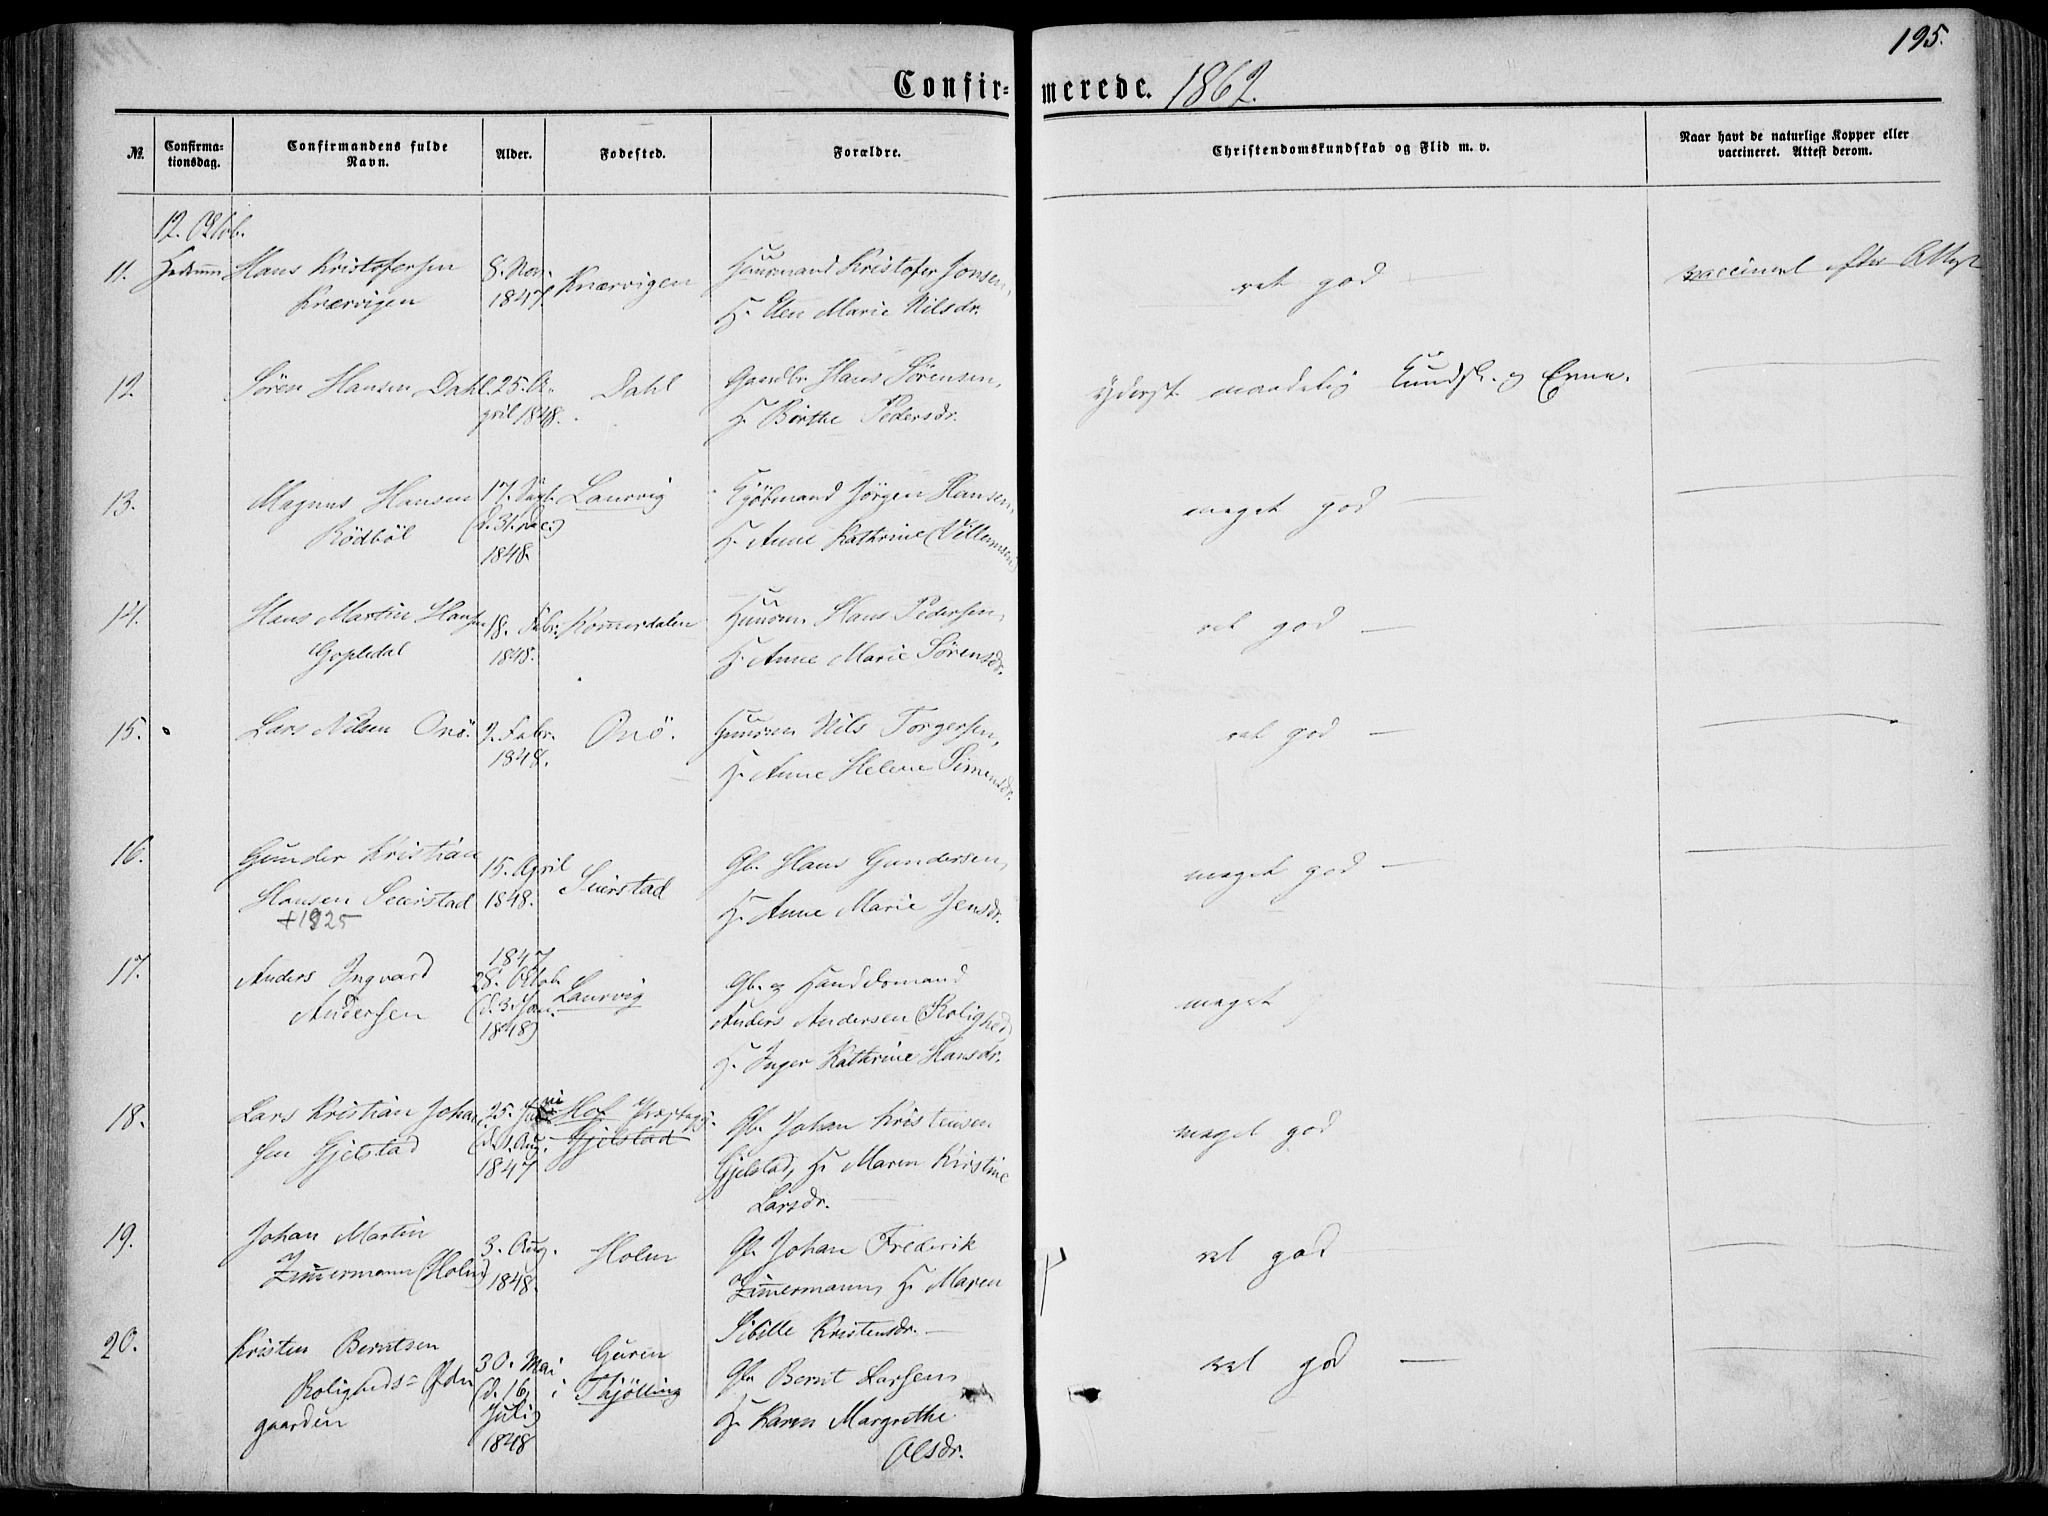 195.
Confirmerede. 1862.
№
Confirmationsdag.
Confirmandens fulde Navn.
Alder.
Fødested.
Forældre.
Christendomskundskab og Flid m. v.
Naar havt de naturlige Kopper eller vaccineret. Attest derom.
12. Oktob.
11. Hedrum Hans Kristofersen 8. Nov. Knærvigen Huusmand Kristofer Jonsen, ret god vaccineret efter Attest
Knærvigen 1847. H. Elen Marie Nilsdr.
12. Sören Hansen Dahl 25. A- Dahl Gaardbr. Hans Sörensen, yderst maadelig Kundsk. og Evne.
pril 1848. H. Birthe Pedersdr.
13. Magnus Hansen 17. Sept. Laurvig Kjöbmand Jörgen Hansen, meget god —
Rödböl (d. 31. Dec) H. Anne Kathrine (Villumsen)
1848.
14. Hans Martin Hansen 18. Febr. Komerdalen Huusm. Hans Pedersen, ret god —
Gopledal 1848. H. Anne Marie Sörensdr.
15. Lars Nilsen Onö. 2. Febr. Onö. Huusm Nils Torgersen, ret god —
1848. H. Anne Helene Simensdr.
16. Gunder Kristian 15. April Seierstad Gb. Hans Gundersen, meget god —
Hansen Seierstad 1848. H. Anne Marie Jensdr.
+1925
1847
17. Anders Ingvard 28. Oktob. Laurvig Gb. og Handelsmand meget
Andersen (d. 3. Jan. Anders Andersen (Rolighed)
1848) H. Inger Kathrine Hansdr.
18. Lars Kristian Johan 25. Juni Hof Præstegj. Gb. Johan Kristensen meget god
sen Gjelstad (d. 1. Aug. Gjelstad Gjelstad, H. Maren Kirstine
1847 Larsdr.
19. Johan Martin 3. Aug. Holm Gb. Johan Frederik ret god
Zimermann (Holm) 1848. Zimermann, H. Maren
Sibille Kristensdr. —
20. Kristen Berntsen 30. Mai Guren Gb. Bernt Larsen, ret god —
Roligheds= Öde (d. 16. i Thjölling H. Karen Margrethe
gaarden Juli) Olsdr.
1848